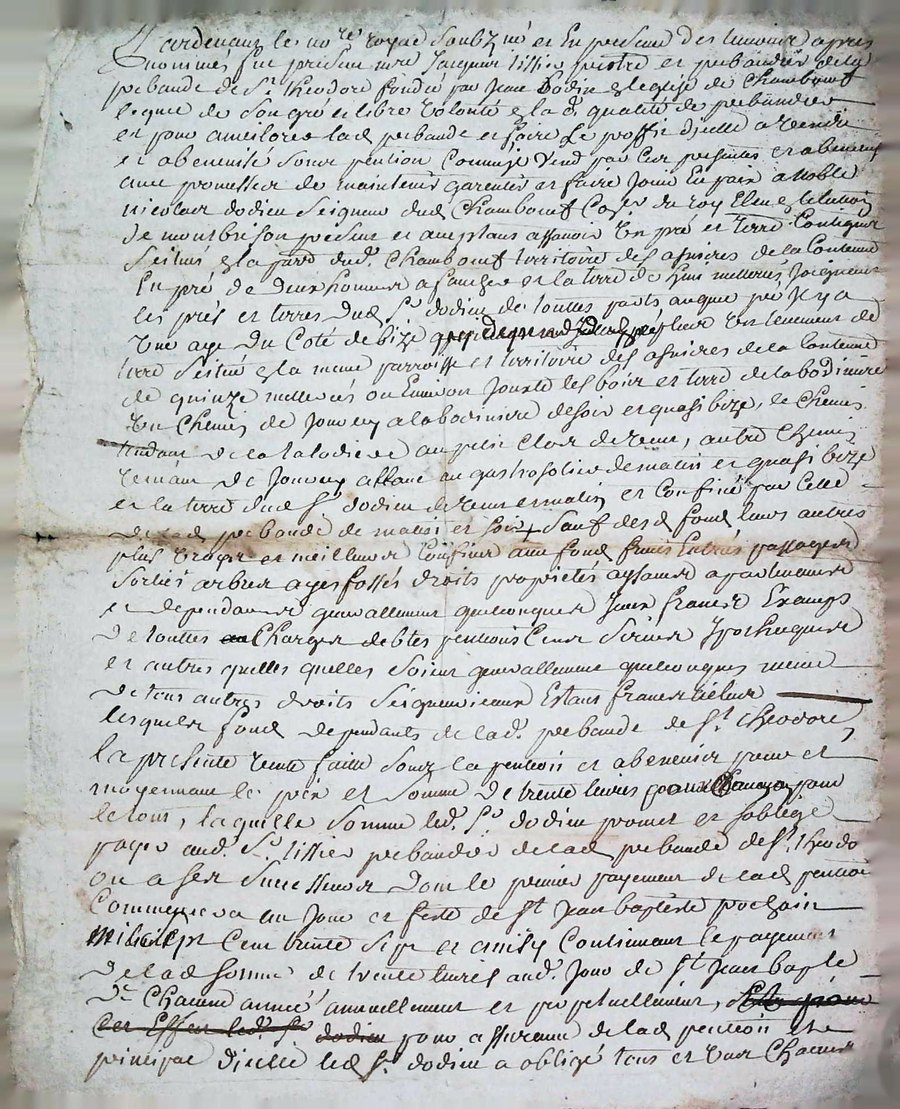 Pardevant le no.re royal soubz.né et en presence des temoins apres
nommés fut present m.re Jacques tissier prestre et prebandier de la
prebande de S.t theodore fondée par Jean Dodin en leglise de Chambeuf
lequel de son gré et libre volonté en lad. qualité de prebandier
et pour ameliorer lad. prebande et faire le proffit dicelle a vendu
et abenevisé sous pention comme il vend par ces presentes et abenevise
avec promesses de maintenir garentir et faire jouir en paix a noble
nicolas dodieu Seigneur dud. Chambeuf Con.er du roy Eleu en lelection
de montbrison present et acceptant assavoir un pré et terre contigus
scitués en la parr. dud. Chambeuf territoire des asnieres de la contenue
le pré de deux hommes a faucher et la terre de huit metterées joignant
les prés et terres dud. S.r dodieu de touttes parts auquel pré il y a
une aye du coté de bize plus un tenement de
terre scitué en la meme parroisse et territoire des asnieres de la contenue
de quinze metterées ou environ jouxte les bois et terre de la bodiniere
un chemin de Jouvey a la bodiniere de soir et quasi bize, le chemin
tendant de la a autre chemin
venant de Jouvey de matin et quasi bize
et la terre dud. S.r dodieu de vent et matin, et confiné par celle
de lad. prebande de matin et soir + sauf desd. fonds leurs autres
plus vrays et meilleurs confins avec fonds fruits entrées passages
sorties arbres ayes fossés droits proprietés aysances apartenances
et dependances generallement quelconques yceux francs exempts
de touttes charges debtes pentions cens servis ypotheques
et autres quelles quelles soient generallement quelconques meme
de tous autres droits seigneuriaux estant francs
lesquels fonds dependants de lad. prebande de S.t theodore
la presente vente faitte sous la pention et abenevis pour et
moyennant le prix et somme de trente livres pour
le tout, laquelle somme led. S.r dodieu promet et soblige
payer aud. S.r tissier prebandier de lad. prebande de S.t theodo
ou a ses successeurs dont le premier payement de lad. pention
commencera au jour et feste de S.t Jean baptiste prochain
mil sept cent trente sept et ainsy continuant le payement
de lad. somme de trente livres aud. jour de S.t Jean bapte
de chacune année annuellement et perpetuellement,
pour assurance de lad. pention et le
principal dicelle led. S.r dodieu a obligé tous et uns chacuns